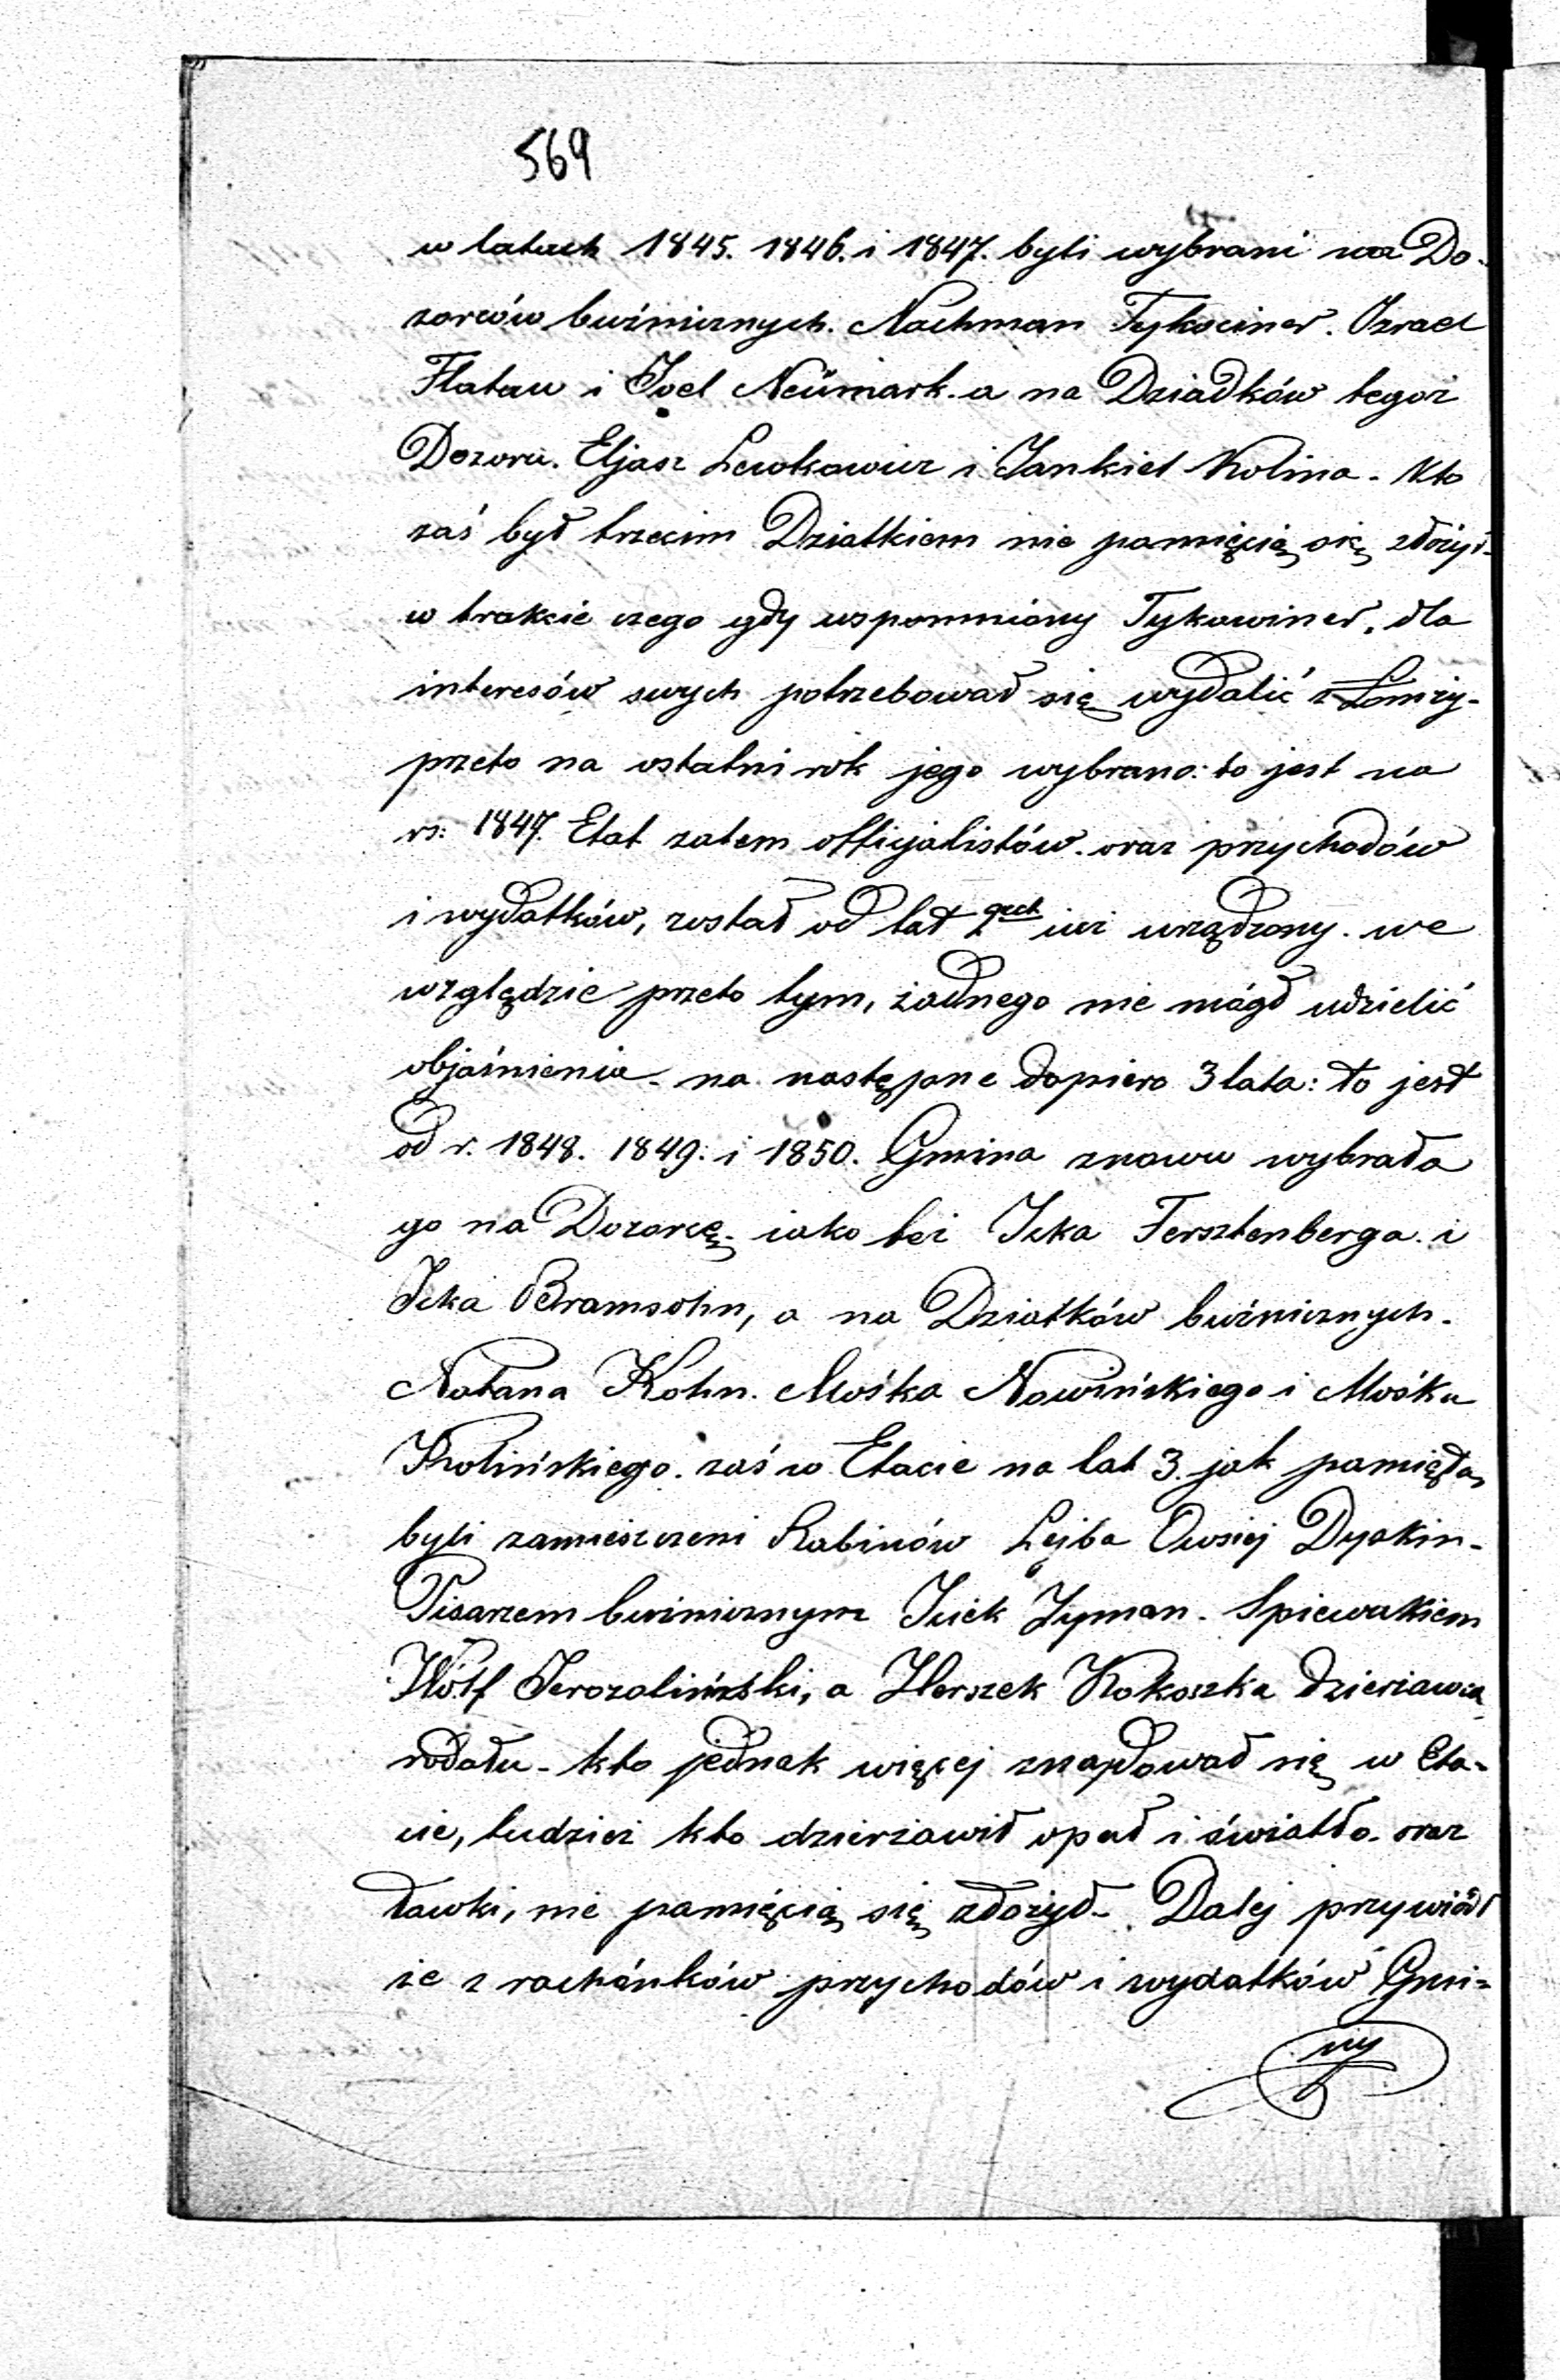 569
w latach 1845. 1846. i 1847. byli wybrani na Do-
zorców bużnicznych. Nachman Tykociner. Izrael
Flatau i Joel Neümark. a na Dziadków tegoż
Dozoru. Eljasz Lewkowicz i Jankiel Kolina. Kto
zaś był trzecim Dziatkiem nie pamięcią się złożył.
w trakcie czego gdy wspomniony Tykociner, dla
interesów swych potrzebował się wydalić z Łomży-
przeto na ostatni rok jego wybrano: to jest na
r: 1847. Etat zatem officjalistów. oraz przychodów
i wydatków, został od lat 2ch iuż urządzony. we
względzie przeto tym, żadnego nie mógł udzielić
objaśnienia. na następne dopiero 3 lata: to jest
od r. 1848. 1849. i 1850. Gmina znowu wybrała
go na Dozorcę. iako też Icka Fersztenberga. i
Icka Bramsohn, a na Dziatków bużnicznych.
Natana Kohn. Mośka Nowińskiego i Mośku
Kolińskiego. zaś w Etacie na lat 3. jak pamięta,
byli zamieszczeni Rabinów Lejba Owsiej Dyskin-
Pisarzem bużnicznym Icick Zyman. Spiewakiem
Wólf Jerozolimski, a Herszek Kokoszka dzierżawca
rodału. kto jednak więcej znajdował się w Eta-
cie, tudzież kto dzierżawił opał i światło. oraz
ławki, nie pamięcią się złożył. Dalej przywiódł
że z rachónków przychodów i wydatków Gmi-
ny